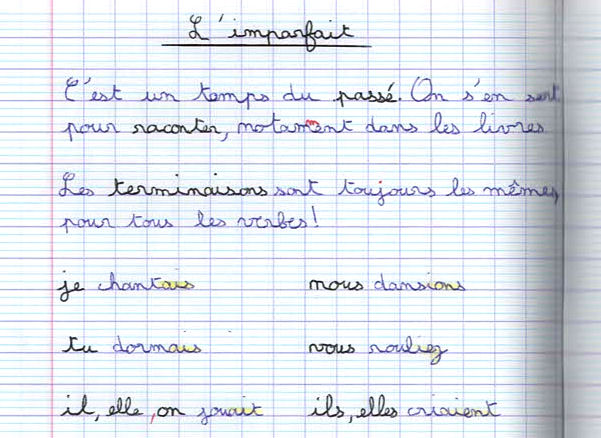 L'imparfait
C'est un temps du passé. On s'en sert
pour raconter, notamment dans les livres
Les terminaisons sont toujours les mêmes,
pour tous les verbes!
je chantais nous dansions
tu dormais vous rouliez
il, elle, on jouait ils, elles criaient